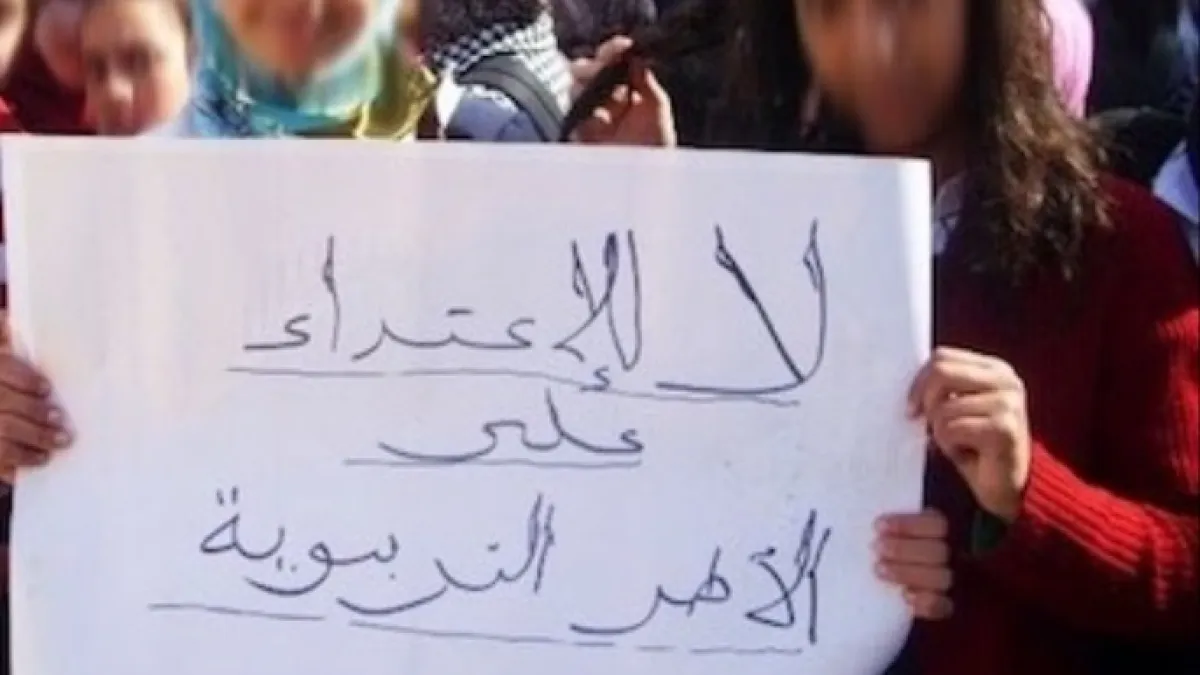 لا للإعتداء
على
الأطر التربوية